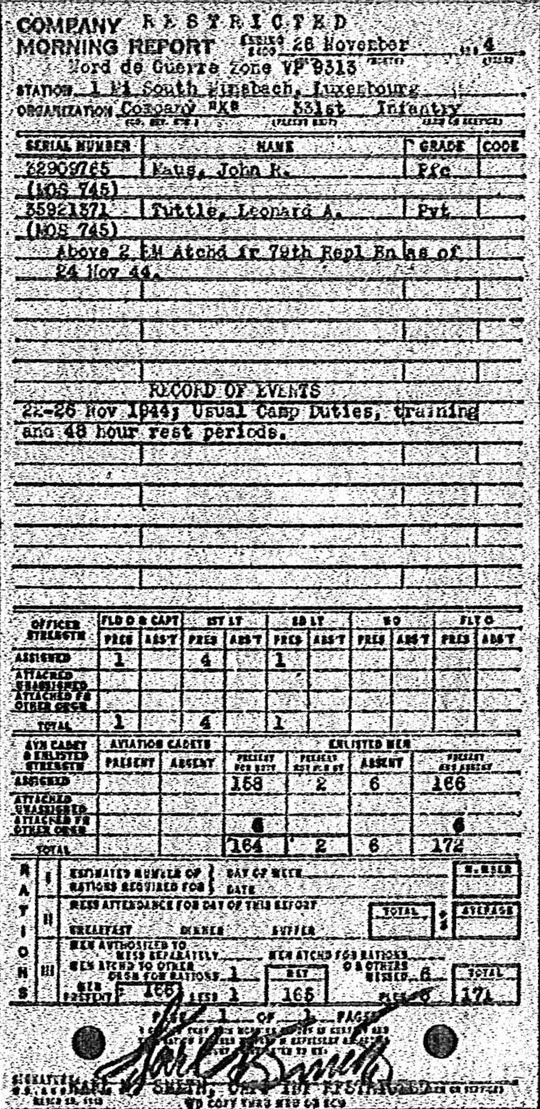 COMPANY RESTRICTED
MORNING REPORT ENDING 26 November 4
Nord de Guerre Zone VP 9313
STATION 1 Mi South Minsbach, Luxembourg
ORGANIZATION Company "K" 331st Infantry
SERIAL NUMBER NAME GRADE CODE
32909765 John R. Pfc
(MOS 745)
35921371 Tuttle, Leonard A. Pvt
(MOS 745)
Above 2 EM Atchd fr 79th Repl Bn as of
24 Nov 44.
RECORD OF EVENTS
22-26 Nov 1944; Usual Camp Duties, training
and 48 hour rest periods.
OFFICER STRENGTH FLD O & CAPT 1ST LT 2D LT WO FLT O
PRES ABS'T PRES ABS'T PRES ABS'T PRES ABS'T PRES ABS'T
ASSIGNED 1 4 1
ATTACHED UNASSIGNED
ATTACHED FR OTHER ORGN
TOTAL 1 4 1
AVN CADET & ENLISTED STRENGTH AVIATION CADETS ENLISTED MEN
PRESENT ABSENT PRESENT FOR DUTY PRESENT NOT FOR DY ABSENT PRESENT AND ABSENT
ASSIGNED 158 2 6 166
ATTACHED UNASSIGNED
ATTACHED FR OTHER ORGN 6 6
TOTAL 164 2 6 172
RATIONS
I ESTIMATED NUMBER OF RATIONS REQUIRED FOR DAY OF WEEK DATE NUMBER
II MESS ATTENDANCE FOR DAY OF THIS REPORT
BREAKFAST DINNER SUPPER TOTAL AVERAGE
III MEN AUTHORIZED TO MESS SEPARATELY MEN ATCHD FOR RATIONS
MEN ATCHD TO OTHER ORGN FOR RATIONS 1 NET OR OTHERS MESSED 6 TOTAL
MEN PRESENT 166 LESS 1 165 PLUS 6 171
PAGE 1 OF 1 PAGES
SIGNATURE SMITH, RESTRICTED